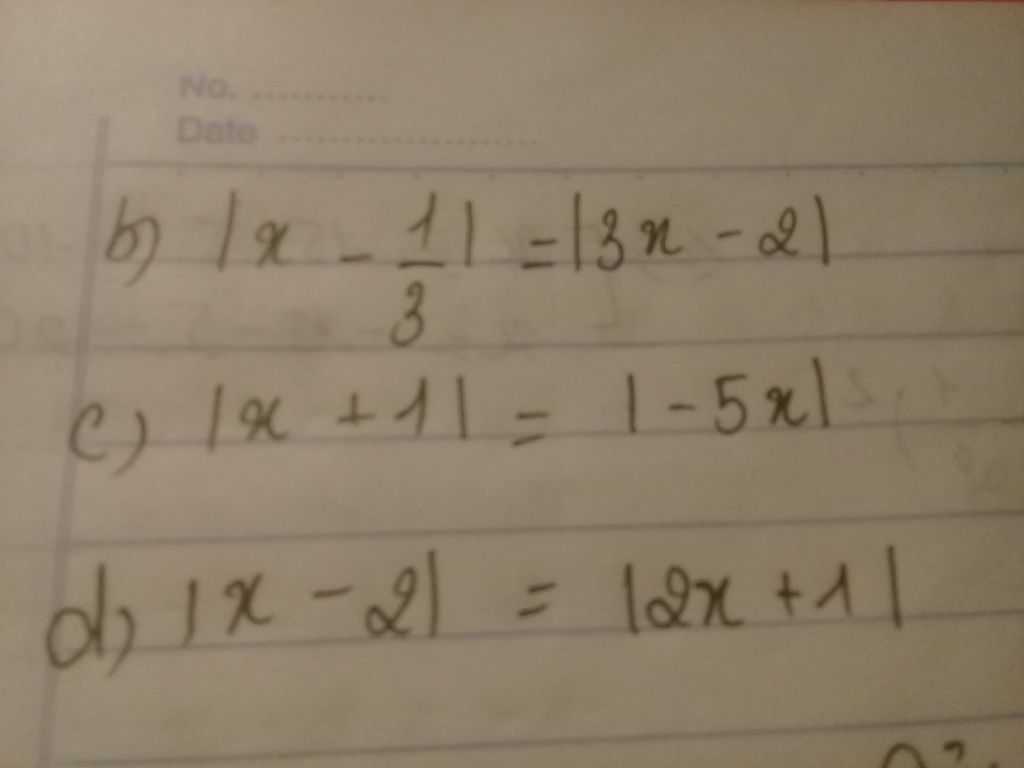 No. ...........
Date ....................
b) |x - 1/3| = |3x - 2|
c) |x + 1| = |- 5x|
d) |x - 2| = |2x + 1|